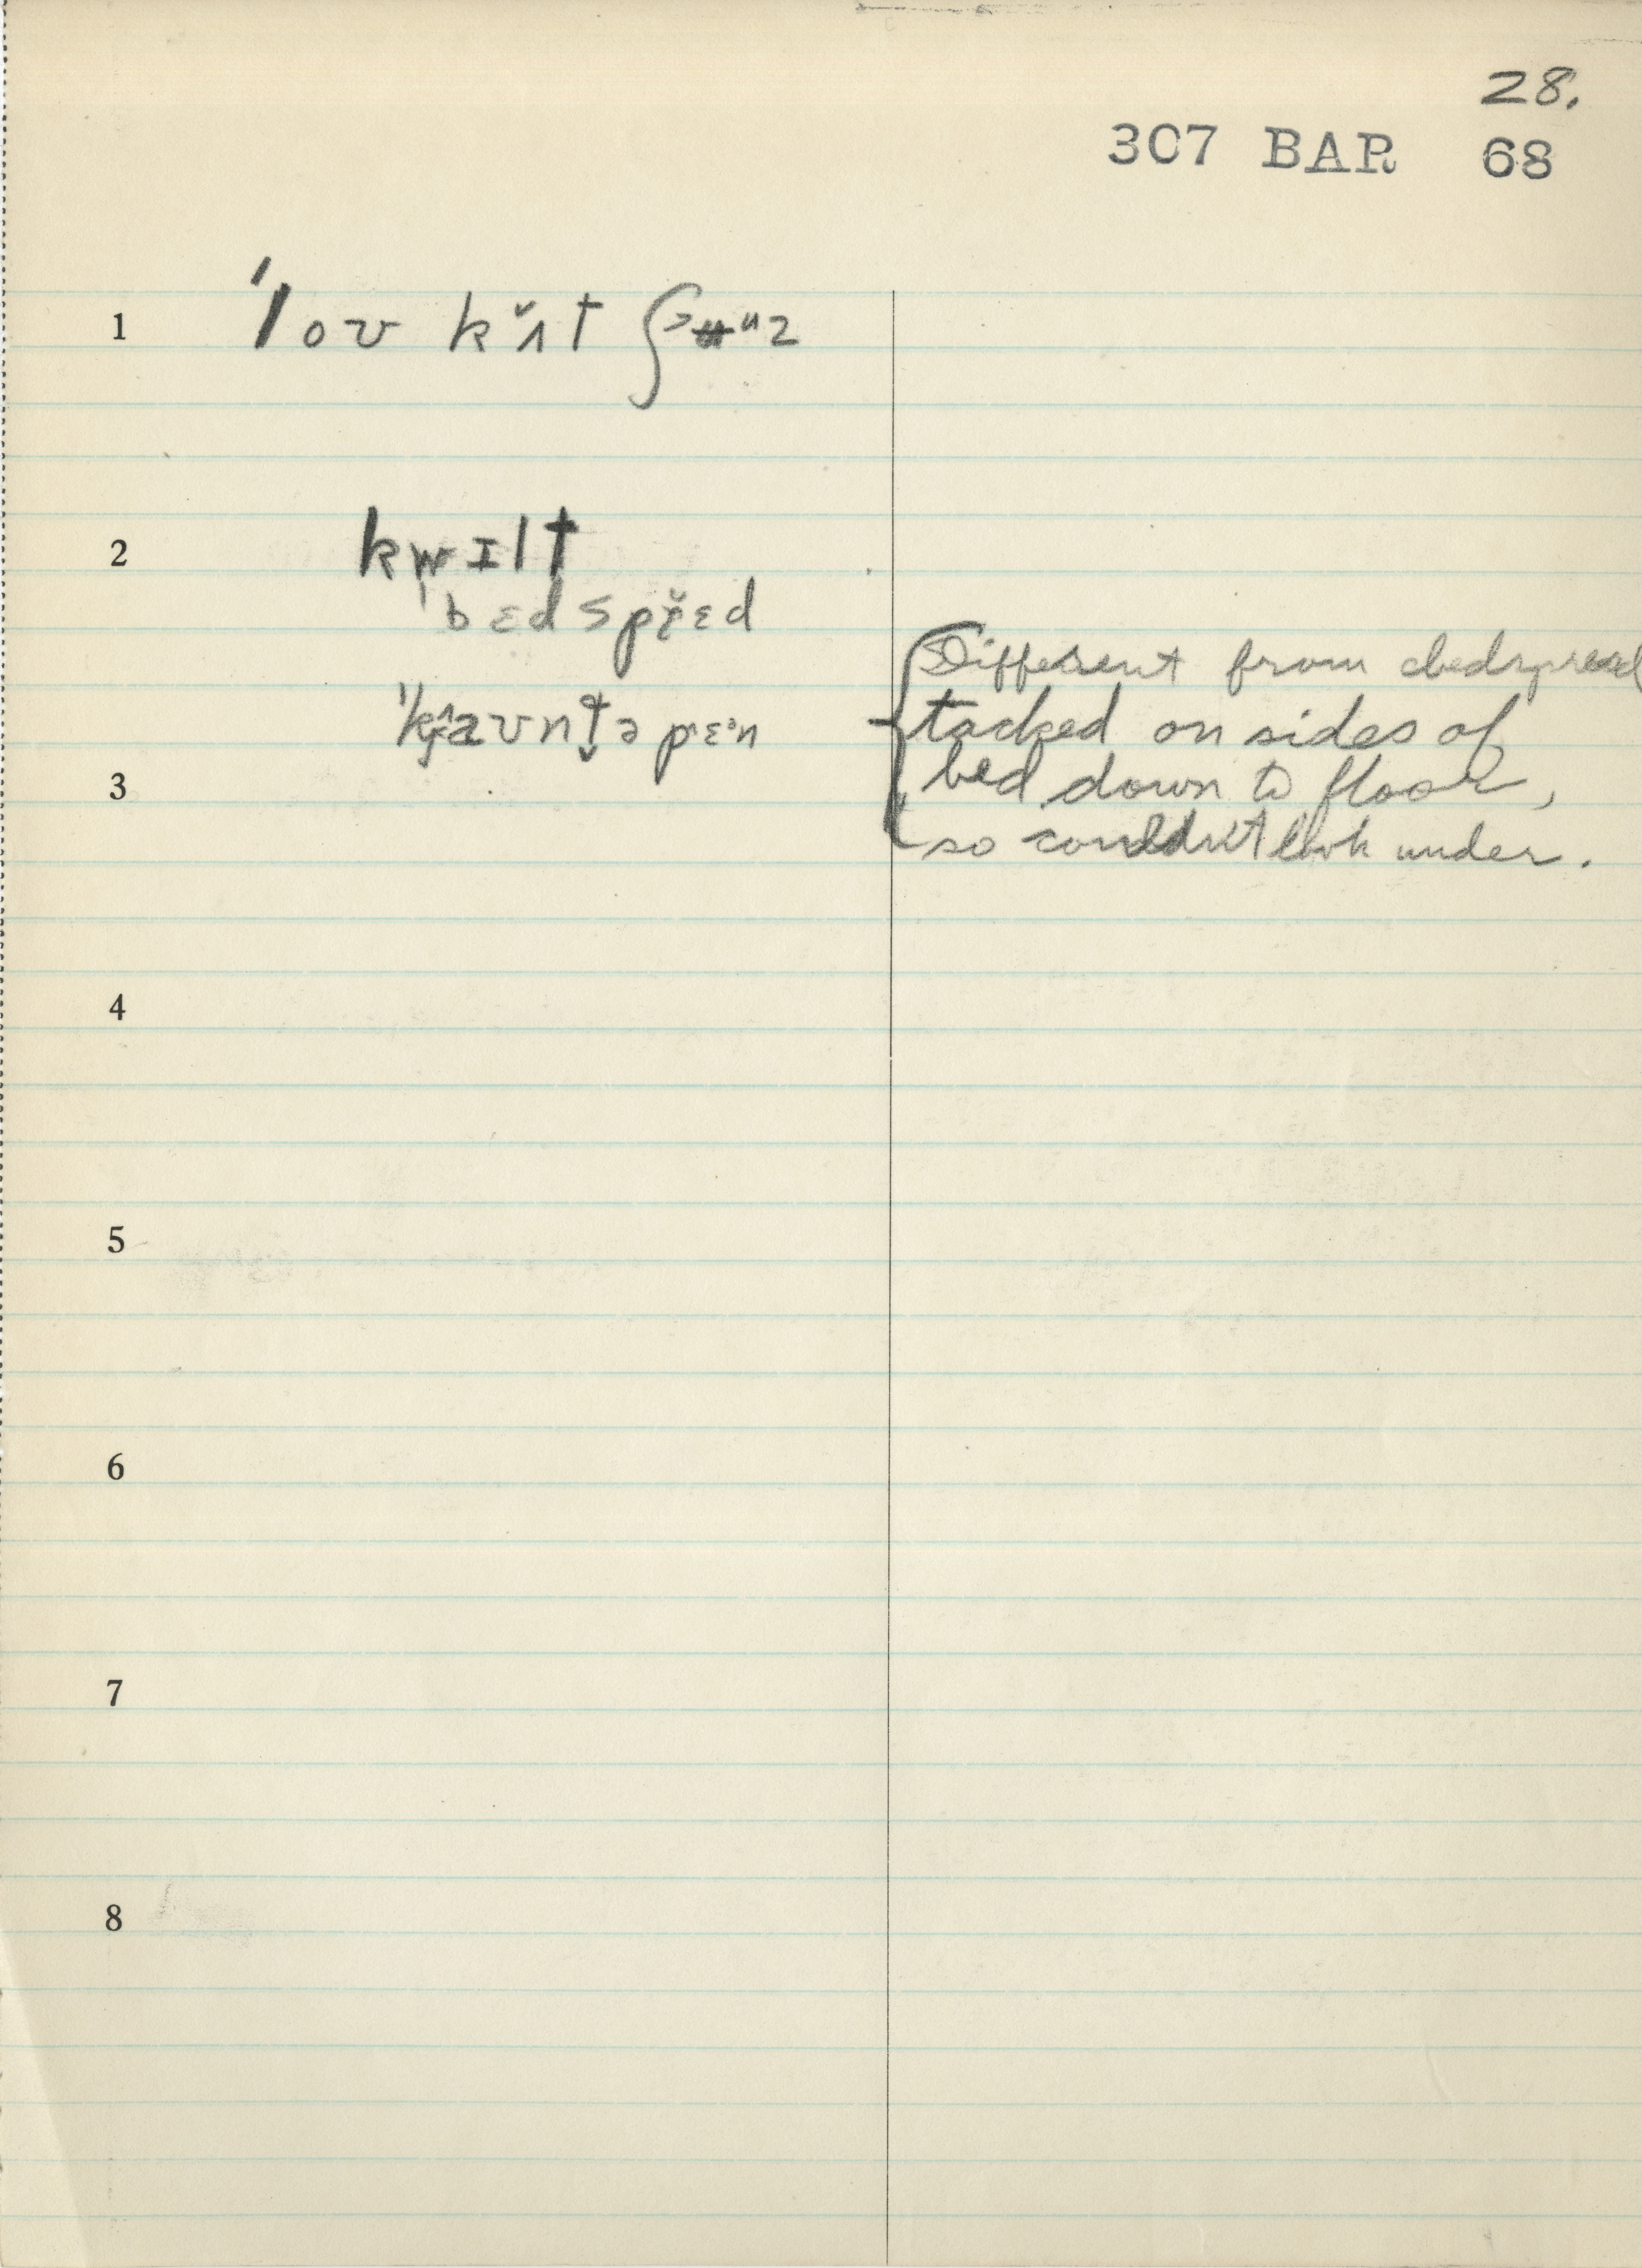 28.
307 BAR 68
1 ˈloʊ kʌ̆t ʃuz
2 kwɪlt
ˈbɛdsprɛ̆d
ˈkaʊntəpɛˑn
Different from bedspread
tacked on sides of
3 bed down to floor,
so couldn't look under.
4
5
6
7
8